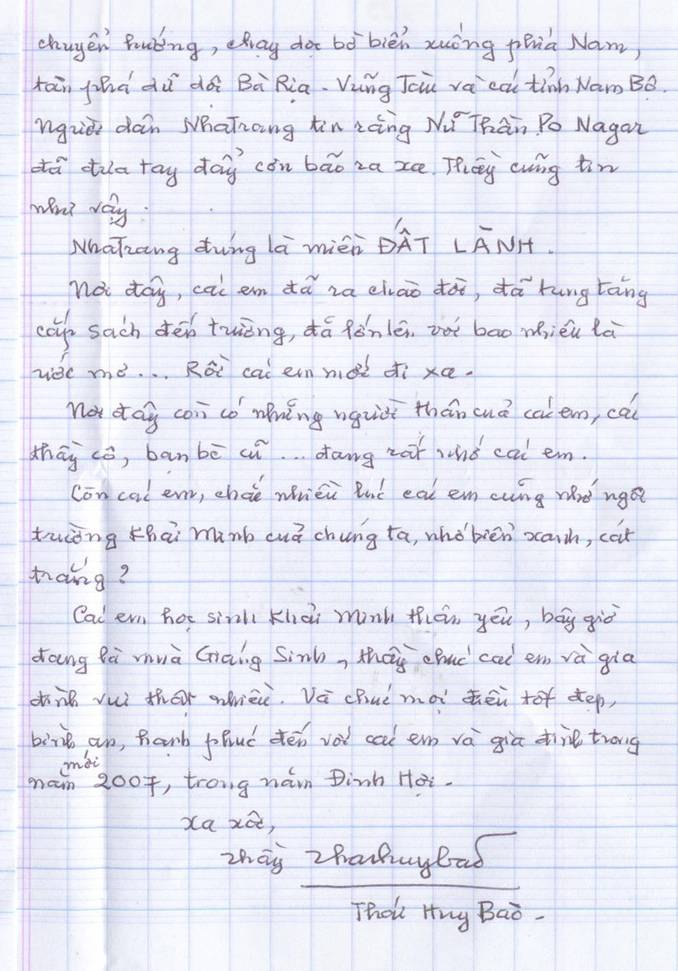 chuyển hướng, chạy dọc bờ biển xuống phía Nam,
tàn phá dữ dội Bà Rịa - Vũng Tàu và các tỉnh Nam Bộ.
Người dân NhaTrang tin rằng Nữ Thần Po Nagar
đã đưa tay đẩy cơn bão ra xa. Thầy cũng tin
như vậy.
NhaTrang đúng là miền ĐẤT LÀNH.
Nơi đây, các em đã ra chào đời, đã tung tăng
cắp sách đến trường, đã lớn lên với bao nhiêu là
ước mơ... Rồi các em mới đi xa.
Nơi đây còn có những người thân của các em, các
thầy cô, bạn bè cũ ... đang rất nhớ các em.
Còn các em, chắc nhiều lúc các em cũng nhớ ngôi
trường Khải Minh của chúng ta, nhớ biển xanh, cát
trắng?
Các em học sinh Khải Minh thân yêu, bây giờ
đang là mùa Giáng Sinh, thầy chúc các em và gia
đình vui thật nhiều. Và chúc mọi điều tốt đẹp,
bình an, hạnh phúc đến với các em và gia đình trong
năm mới 2007, trong năm Đinh Hợi.
Xa xôi,
Thầy thaihuybao
Thái Huy Bảo -